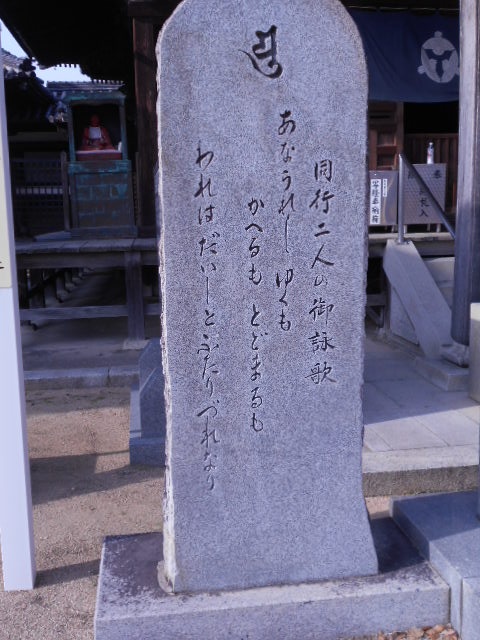 同行二人の御詠歌
あなうれし ゆくも
かへるも とどまるも
われはだいしと ふたりづれなり